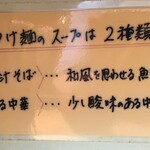 つけ麺のスープは2種類
汁そば〉… 和風を思わせる魚
る中華〉… 少し酸味のある中